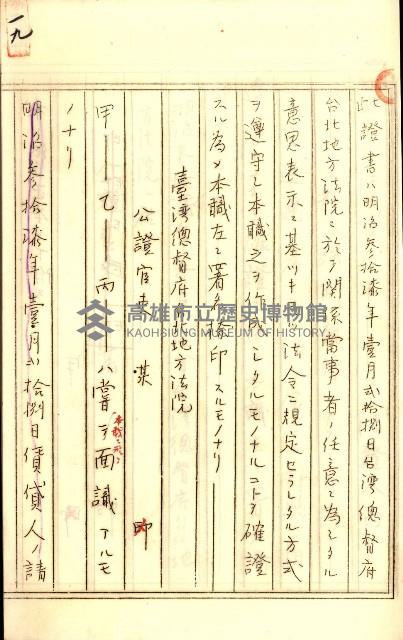 一九
此證書ハ明治參拾漆年壹月貳拾捌日台湾總督府
台北地方法院ニ於テ関係當事者ノ任意ニ為シタル
意思表示ニ基ツキ且ツ法令ニ規定セラレタル方式
ヲ遵守シ本職之ヲ作成シタルモノナルコトヲ確證
スル為メ本職左ニ署名捺印スルモノナリ
臺湾總督府 地方法院
公證官吏 某 印
甲 乙 丙 ハ嘗テ面識アルモ
ノナリ
明治參拾漆年壹月貳拾捌日賃貸人ノ請
高雄市立歷史博物館
KAOHSIUNG MUSEUM OF HISTORY